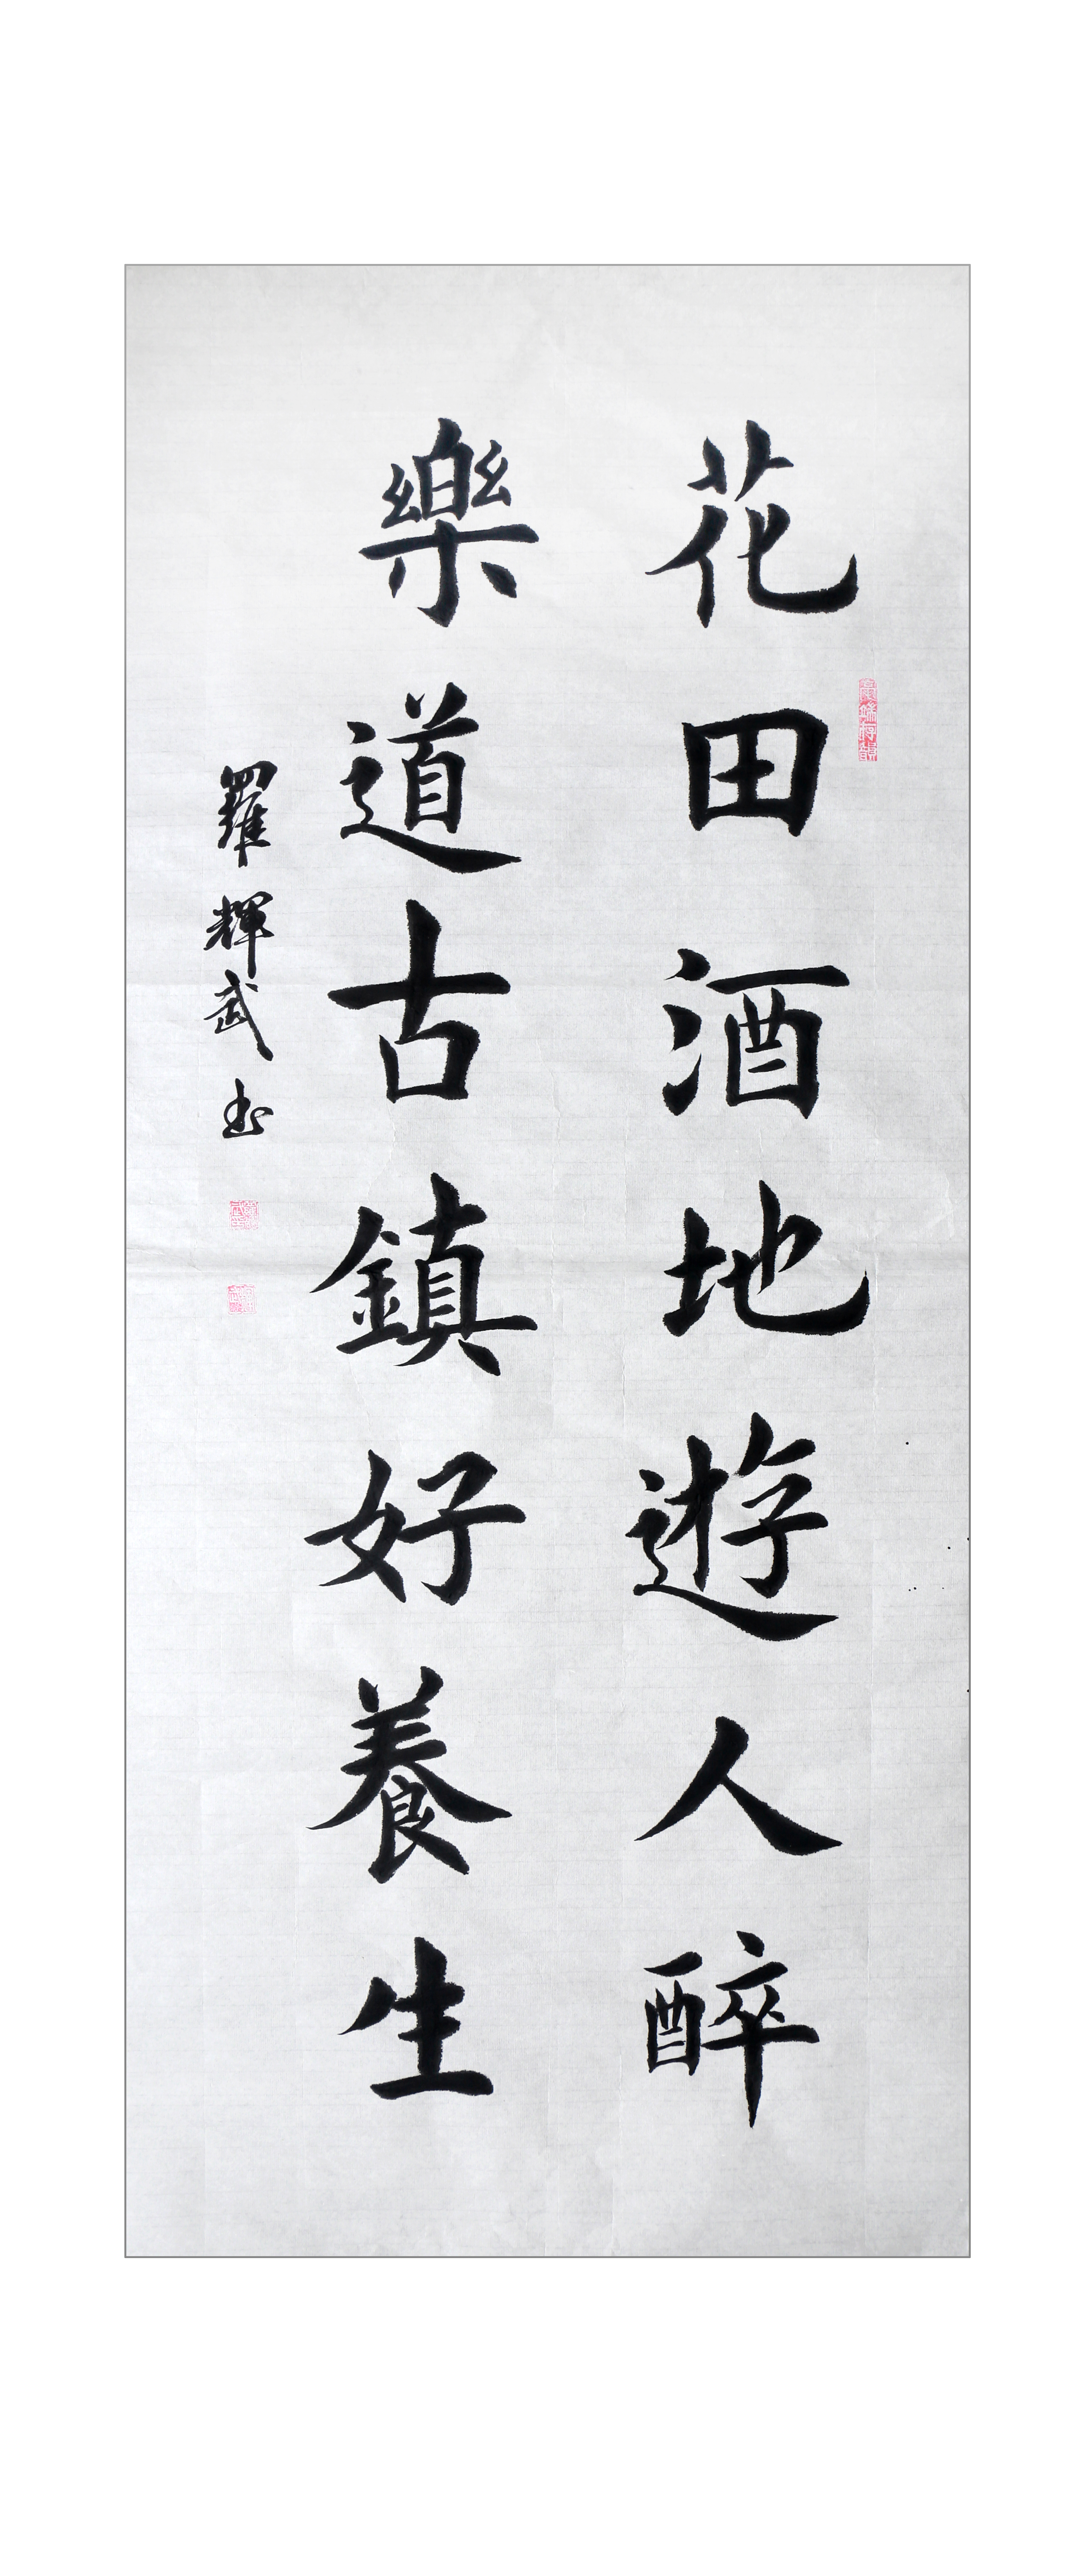 花田酒地遊人醉
樂道古鎮好養生
羅輝武书